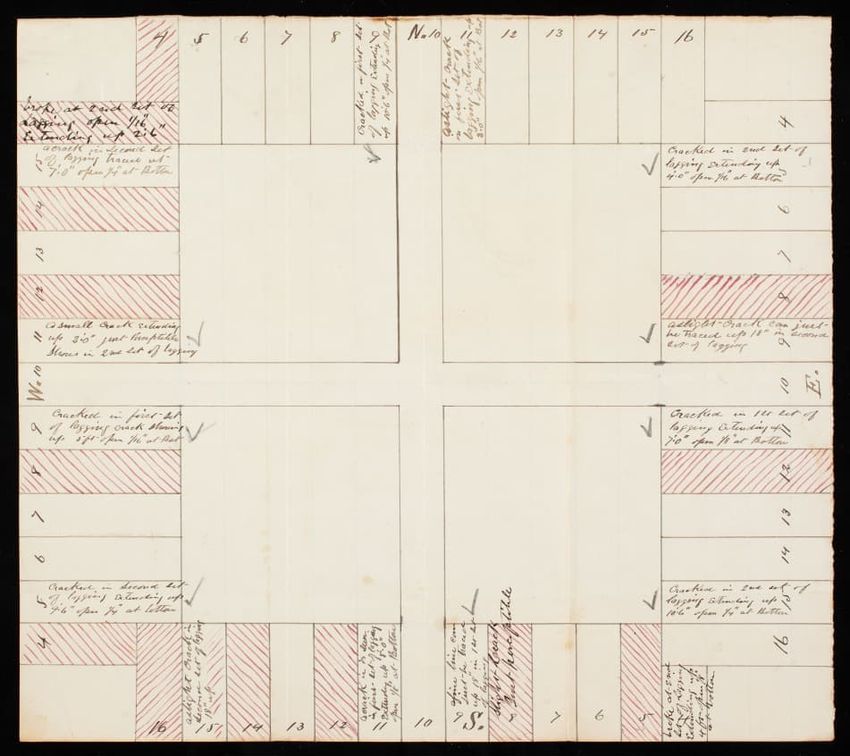 4 5 6 7 8 9 No 10 11 12 13 14 15 16
Cracked in first set
of lagging Extending
up 10'6" open 1/4 at Bot
a slight crack
in first set of
lagging Extending up
3'0" open 1/16 at Bot
broke at 2nd set of
Lagging open 1/16"
Extending up 2'6"
a crack in second set
of lagging traced up
7'0" open 1/4" at Bottom
14
13
12
11
a small crack Extending
up 3'0" just perceptible
shows in 2nd set of lagging
W. 10
9
Cracked in first set
of lagging crack showing
up 5 ft open 1/16" at Bot
8
7
6
5
Cracked in second set
of lagging Extending up
9'6" open 1/4" at bottom
4
4
Cracked in 2nd set of
lagging extending up
4'0" open 1/16 at Bottom
5
6
7
8
a slight crack can just
be traced up 18" in second
set of lagging
9
10 E.
Cracked in 1st set of
lagging Extending up
7'0" open 1/8" at Bottom
11
12
13
14
Cracked in 2nd set of
lagging Extending up
10'6" open 1/4" at Bottom
15
16
a slight crack in
second set of lagging
18" up
a crack
in first set of lagging
Extending up 8'0"
open 1/8" at Bottom
fine line can
just be traced
up 18" in 1st set
of lagging
slight crack
Just perceptible
broke at 2nd
set of lagging
Extending up
at bottom
16 15 14 13 12 11 10 9 S. 8 7 6 5